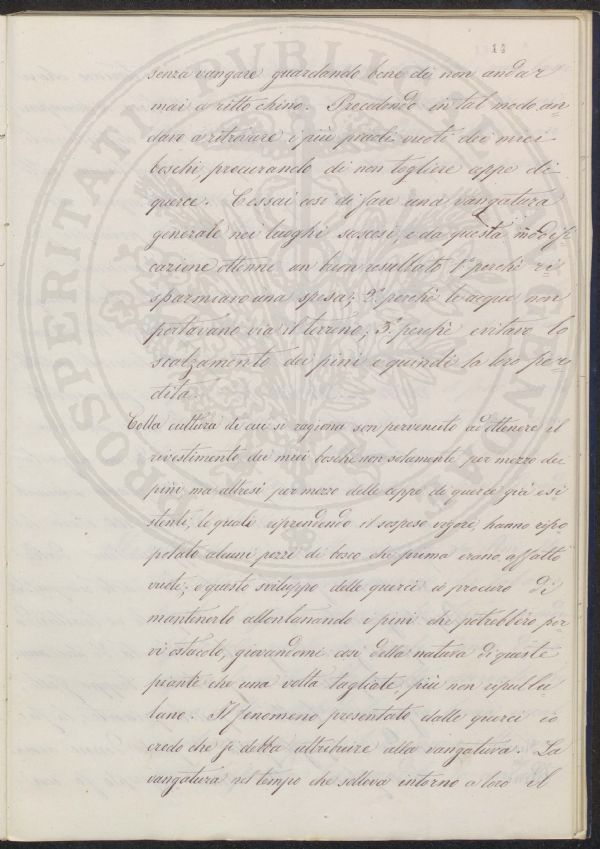 13
senza vangare guardando bene di non andar
mai a ritto chino. Procedendo in tal modo an-
davo a ritrovare i più piccoli vuoti dei miei
boschi procurando di non togliere ceppe di
querce. Cessai così di fare una vangatura
generale nei luoghi scoscesi, e da questa modifi
cazione ottenni un buon resultato 1º perché ri-
sparmiavo una spesa; 2º perché le acque non
portavano via il terreno; 3º perché evitavo lo
scalzamento dei pini e quindi la loro per-
dita.
Colla cultura di cui si ragiona son pervenuto ad ottenere il
rivestimento dei miei boschi non solamente per mezzo dei
pini, ma altresì per mezzo delle ceppe di querci già esi
stenti, le quali riprendendo il sospeso vigore, hanno ripo
polato alcuni pezzi di bosco che prima erano affatto
vuoti; e questo sviluppo delle querci io procuro di
mantenerlo allontanando i pini che potrebbero por
vi ostacolo, giovandomi così della natura di queste
piante che una volta tagliate, più non ripullu
lano. Il fenomeno presentato dalle querci io
credo che si debba attribuire alla vangatura. La
vangatura nel tempo che solleva intorno a loro il
PROSPERITATI PVBLICAE